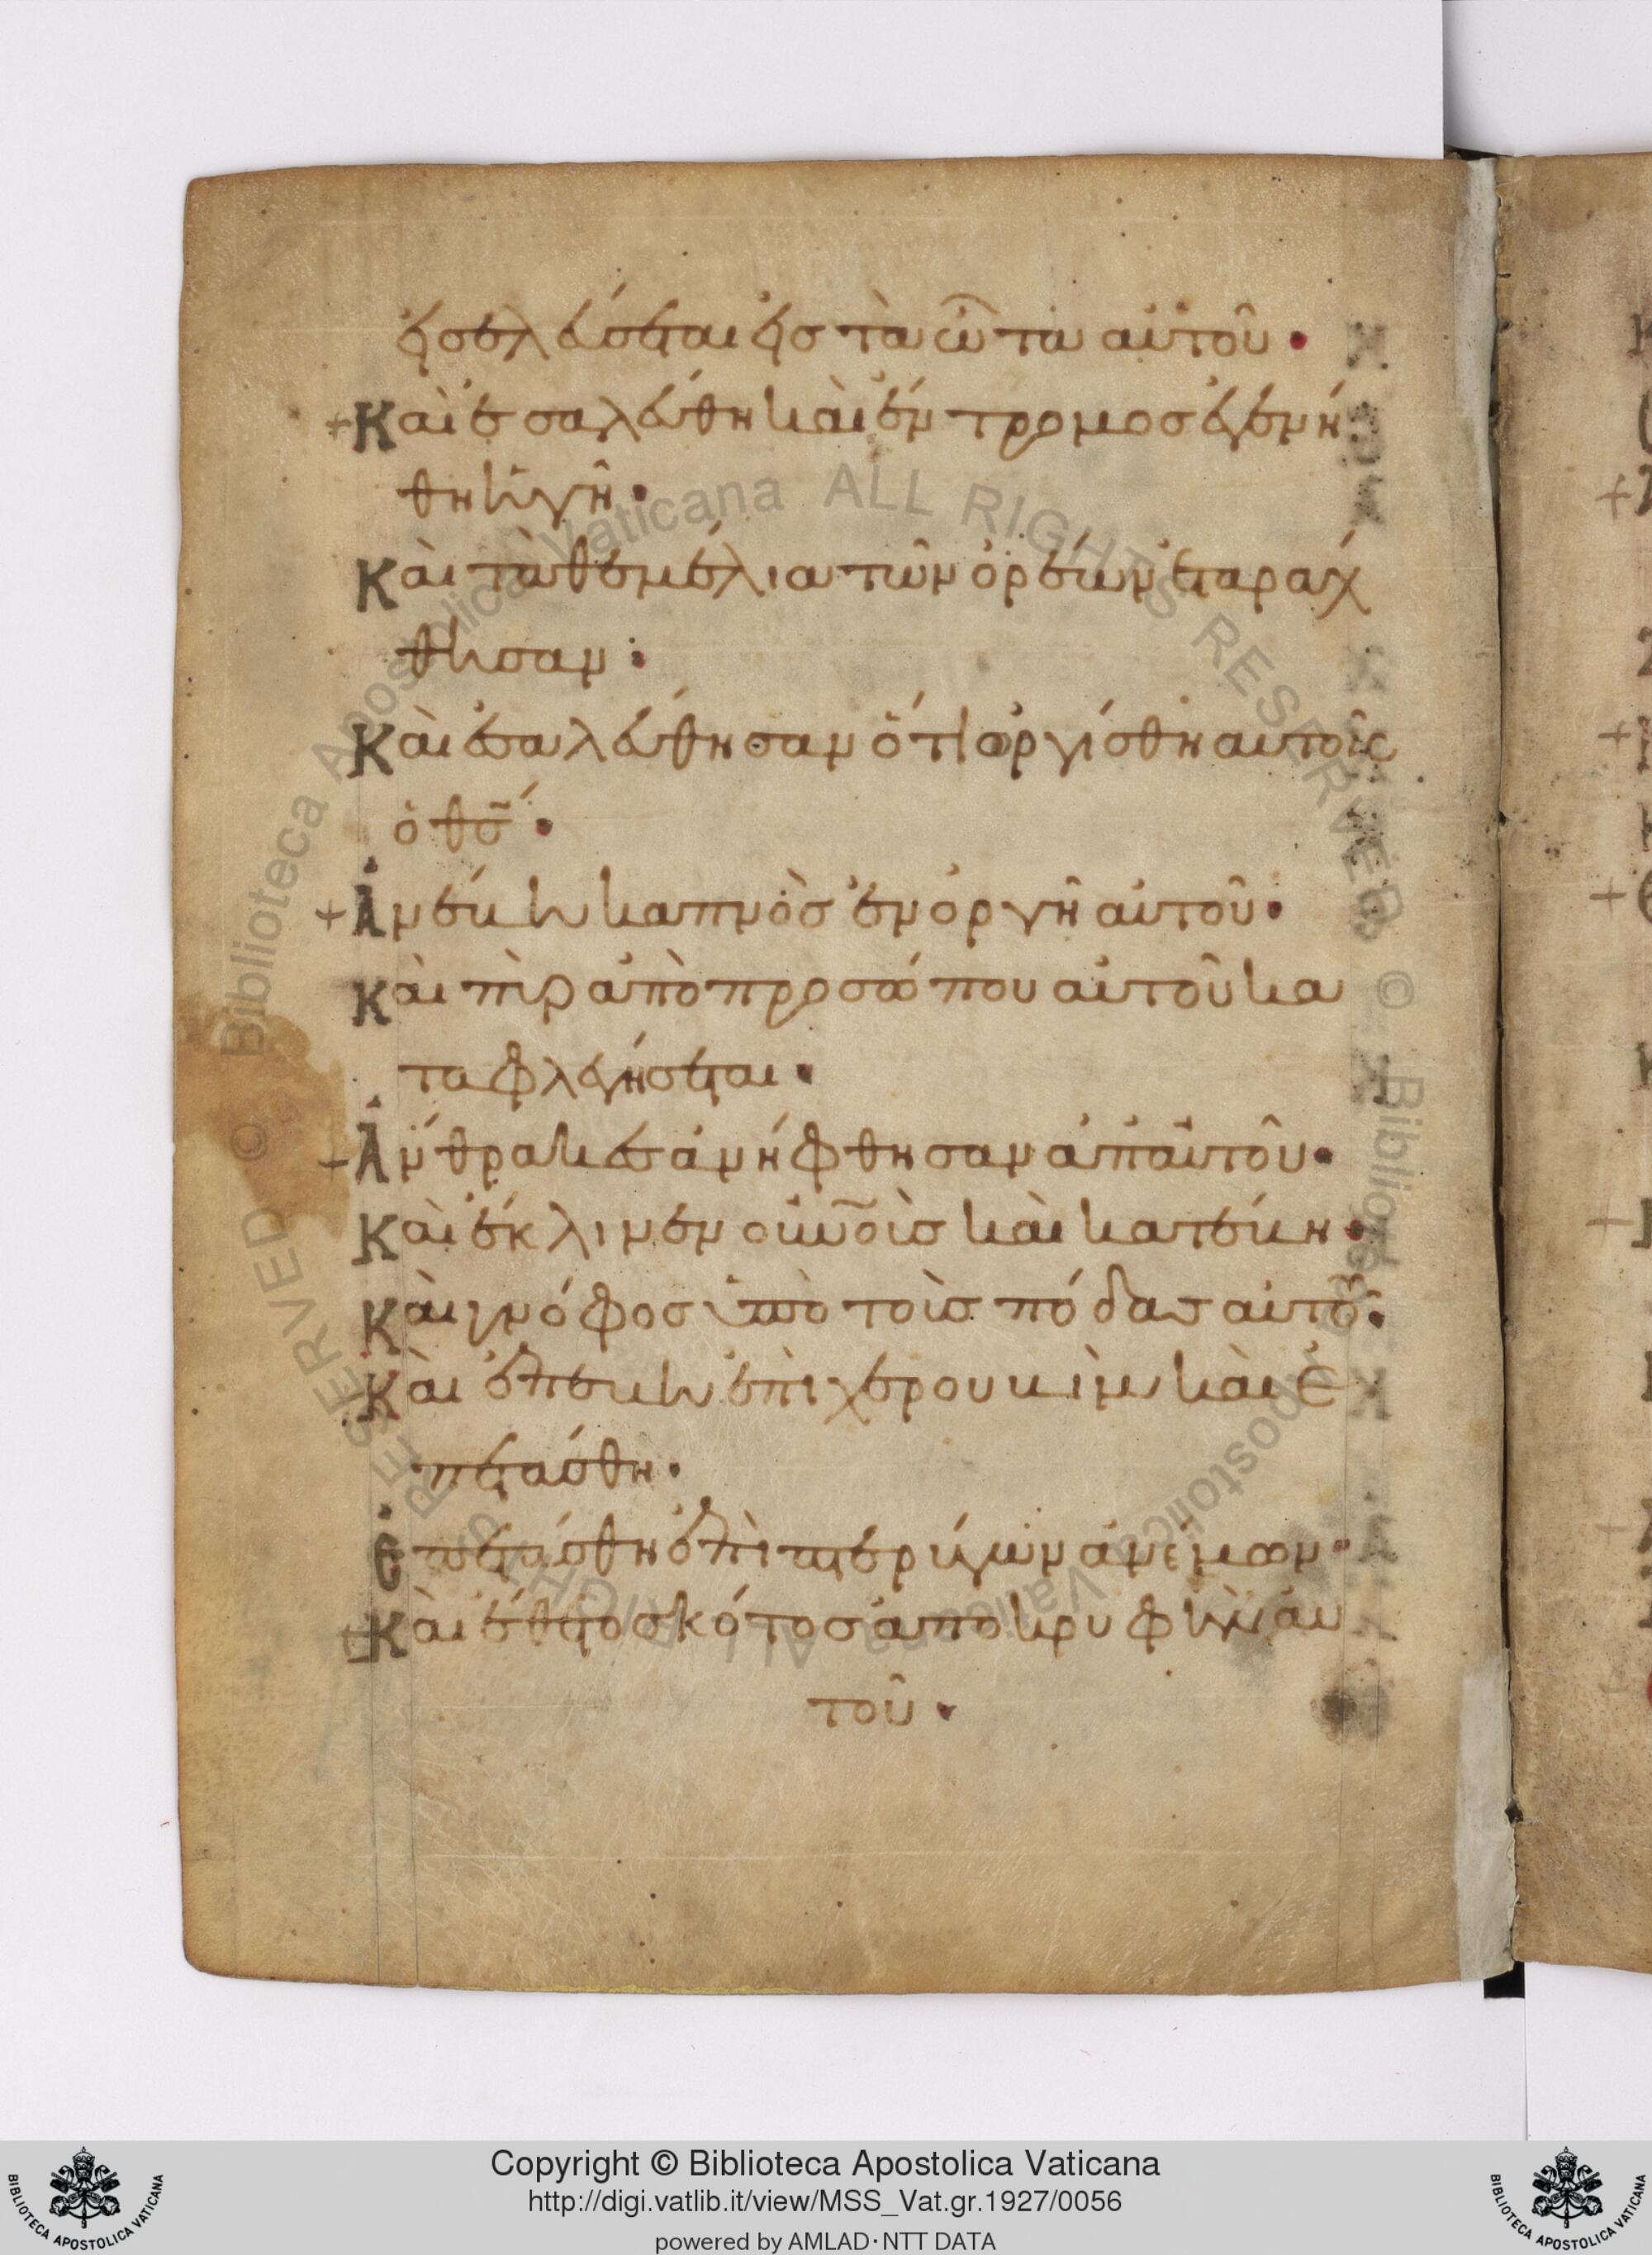 εἰσελεύσεται εἰς τὰ ὦτα αὐτοῦ •
+ Καὶ ἐσαλεύθη καὶ ἔντρομος ἐγενή
θη ἡ γῆ •
Καὶ τὰ θεμέλια τῶν ὀρέων ἐταράχ
θησαν :
Καὶ ἐσαλεύθησαν ὅτι ὀργίσθη αυτοῖς
ὁ θσ̄ •
+ Ἀνέβη καπνὸς ἐν ὀργῆ αὐτοῦ •
Καὶ πὺρ ἀπὸ προσώπου αὐτοῦ κα
ταφλεγήσεται •
+ Ἄνθρακες ἀνήφθησαν ἀπ' αὐτοῦ •
Καὶ ἔκλινεν οὐνοὺς καὶ κατέβη •
Καὶ γνόφος ὑπὸ τοὺς πόδας αὐτοῦ •
Καὶ ἐπέβη ἐπὶ χερουβὶμ καὶ ἐ
πετάσθη •
Ἐπετάσθη ἐπὶ πτερύγων ἀνέμων •
+ Καὶ ἔθετο σκότος ἀποκρυφὴν αυ
τοῦ •
Biblioteca Apostolica Vaticana ALL RIGHTS RESERVED ©
Biblioteca Apostolica Vaticana ALL RIGHTS RESERVED ©
Copyright © Biblioteca Apostolica Vaticana
http://digi.vatlib.it/view/MSS_Vat.gr.1927/0056
powered by AMLAD·NTT DATA
BIBLIOTECA APOSTOLICA VATICANA
BIBLIOTECA APOSTOLICA VATICANA